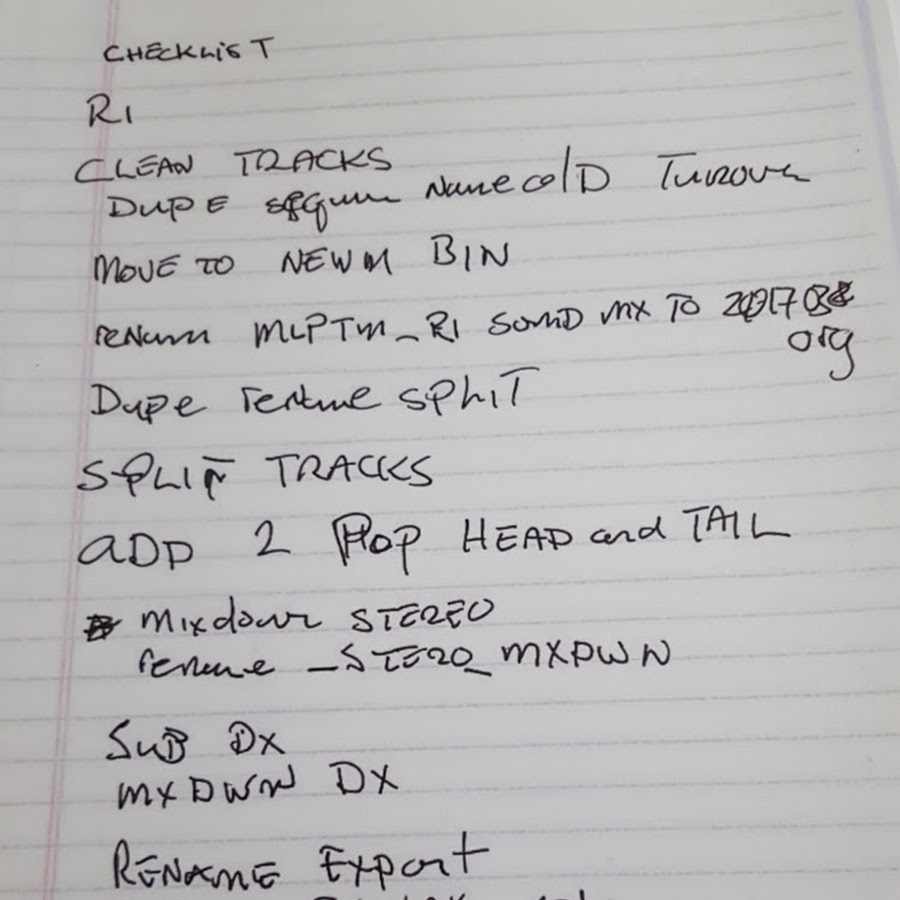 CHECKLIST
R1
CLEAN TRACKS
DUPE Name TURNOVER
MOVE TO NEWM BIN
rename MLPTM_R1 SOUND MX TO
org
Dupe rename SPLIT
SPLIT TRACKS
ADD 2 Pop HEAD and TAIL
mixdown STEREO
rename _STERO_MXDWN
SUB DX
MXDWN DX
RENAME Export